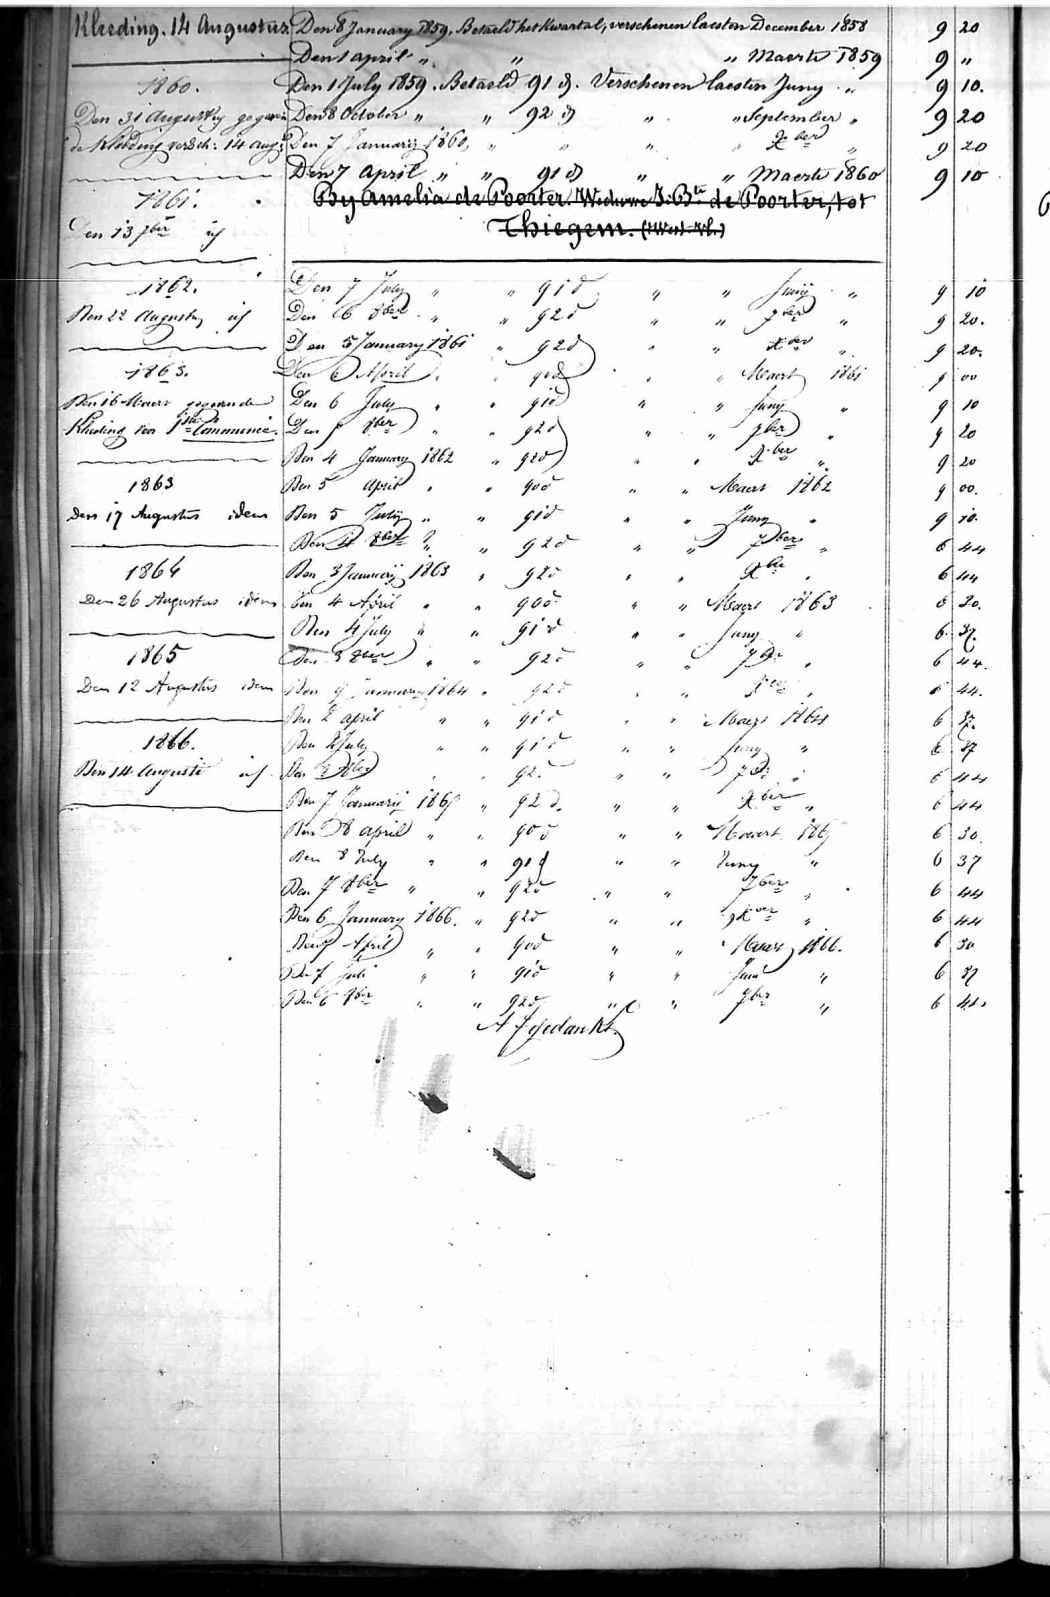 Kleeding. 14 Augustus. Den 8 January 1859. Betaeld het kwartal, verschenen laesten December 1858 9 20
Den 1 april " " " Maerte 1859 9 "
1860. Den 1 July 1859. Betaeld 91 d. Verschenen laesten Juny " 9 10.
Den 31 Augusty gegeven Den 8 October " " 92 d " " September " 9 20
de Kleeding versch: 14 aug: Den 7 January 1860, " " " " Xber " 9 20
Den 7 April " " 91 d " " Maerte 1860 9 10
1861. By Amelia de Poorter, Weduwe J. Bte de Poorter, tot
Den 13 7ber id Thiegem. (West-Vl.)
1862. Den 7 July " " 91 d " " Juny " 9 10
Den 22 Augusty id Den 6 8ber " " 92 d " " 7ber " 9 20.
Den 5 January 1861 " 92 d " " Xber " 9 20.
1863. Den 6 April " " 90 d " " Maert 1861 9 00
Den 16 Maert gegeven de Den 6 July " " 91 d " " Juny " 9 10
Kleeding van 1ste Communie. Den 8ber " " 92 d " " 7ber " 9 20
Den 4 January 1862 " 92 d " " Xber " 9 20
1863 Den 5 april " " 90 d " " Maert 1862 9 00.
Den 17 Augustus idem Den 5 July " " 91 d " " Juny " 9 10.
Den 4 8ber " " 92 d " " 7ber " 6 44
1864 Den 3 January 1863 " 92 d " " Xber " 6 44
Den 26 Augustus idem Den 4 April " " 90 d " " Maert 1863 6 30.
Den 4 July " " 91 d " " Juny " 6 37.
1865 Den 3 8ber " " 92 d " " 7ber " 6 44.
Den 12 Augustus idem Den 9 January 1864 " 92 d " " Xber " 6 44.
Den 2 april " " 91 d " " Maert 1864 6 37.
1866. Den 2 July " " 91 d " " Juny " 6 37
Den 14 Auguste id. Den 8ber " " 92 d " " 7ber " 6 44
Den 7 January 1865 " 92 d. " " Xber " 6 44
Den 8 april " " 90 d " " Maert 1865 6 30.
Den 8 July " " 91 d " " Juny " 6 37
Den 7 8ber " " 92 d " " 7ber " 6 44
Den 6 January 1866. " 92 d " " Xber " 6 44
Den 7 April " " 90 d " " Maert 1866. 6 30
Den 7 Juli " " 91 d " " Juni " 6 37
Den 6 8ber " " 92 d " " 7ber " 6 44
Afgedankt.